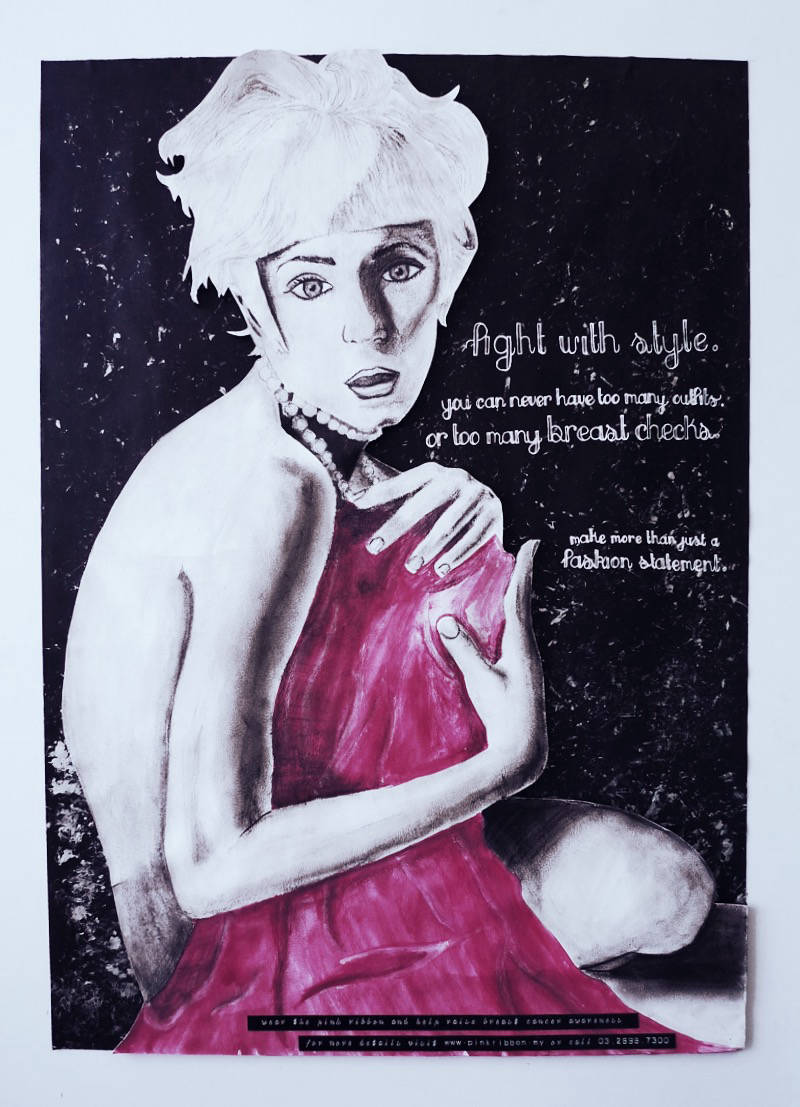 fight with style.
you can never have too many outfits.
or too many breast checks.
make more than just a
fashion statement.
wear the pink ribbon and help raise breast cancer awareness
for more details visit www.pinkribbon.my or call 03 2698 7300